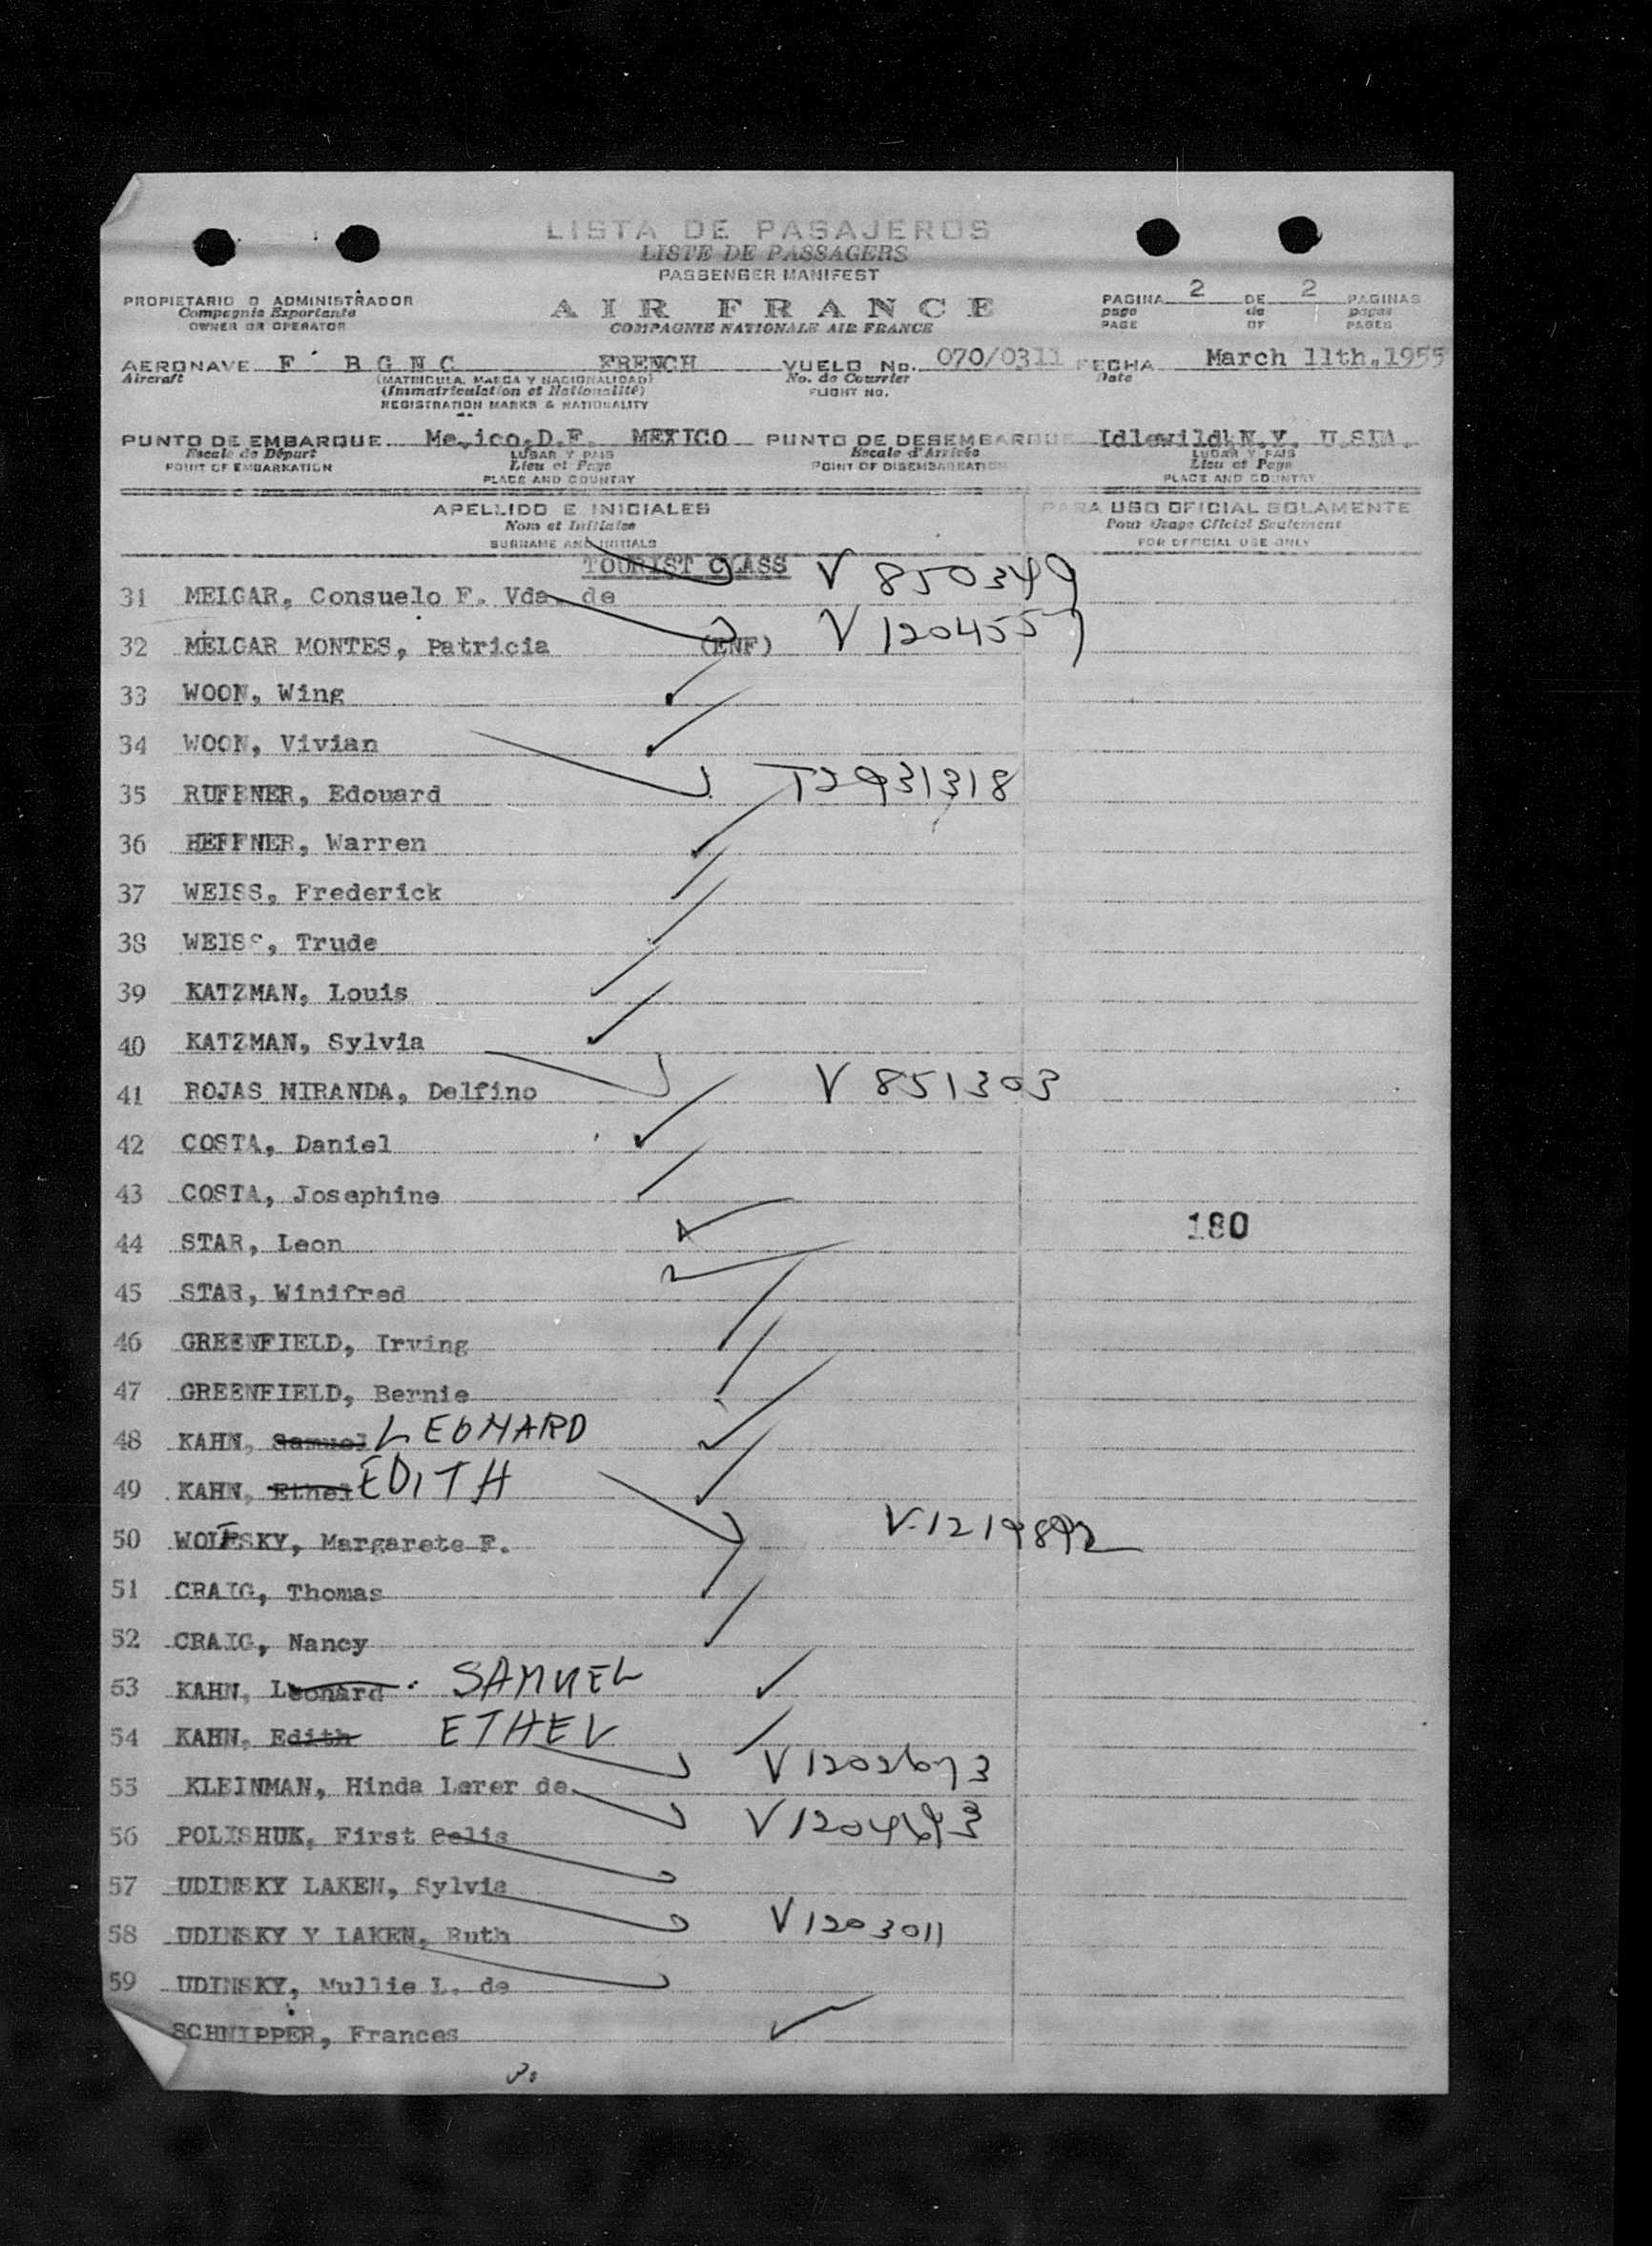 LISTA DE PASAJEROS
LISTE DE PASSAGERS
PASSENGER MANIFEST
PROPIETARIO O ADMINISTRADOR
Compagnie Exportante
OWNER OR OPERATOR
AIR FRANCE
COMPAGNIE NATIONALE AIR FRANCE
PAGINA 2 DE 2 PAGINAS
page de pages
PAGE OF PAGES
AERONAVE F BGNC FRENCH VUELO No. 070/0311 FECHA March 11th,1955
Aircraft (MATRICULA, MARCA Y NACIONALIDAD) No. de Courrier Date
(Immatriculation et Nationalité) FLIGHT NO.
REGISTRATION MARKS & NATIONALITY
PUNTO DE EMBARQUE Mexico,D.F. MEXICO PUNTO DE DESEMBARQUE Idlewild N.Y. U.S.A.
Escale de Départ LUGAR Y PAIS Escale d'Arrivée LUGAR Y PAIS
POINT OF EMBARKATION Lieu et Pays POINT OF DISEMBARKATION Lieu et Pays
PLACE AND COUNTRY PLACE AND COUNTRY
APELLIDO E INICIALES PARA USO OFICIAL SOLAMENTE
Nom et Initiales Pour Usage Officiel Seulement
SURNAME AND INITIALS FOR OFFICIAL USE ONLY
TOURIST CLASS
31 MELGAR, Consuelo F. Vda. de V 850349
32 MELGAR MONTES, Patricia (ENF) V 1204557
33 WOON, Wing
34 WOON, Vivian
35 RUFENER, Edouard T2931318
36 HEFFNER, Warren
37 WEISS, Frederick
38 WEISS, Trude
39 KATZMAN, Louis
40 KATZMAN, Sylvia
41 ROJAS MIRANDA, Delfino V 851303
42 COSTA, Daniel
43 COSTA, Josephine
180
44 STAR, Leon
45 STAR, Winifred
46 GREENFIELD, Irving
47 GREENFIELD, Bernie
48 KAHN, Samuel LEONARD
49 KAHN, Ethel EDITH
50 WOLFSKY, Margarete F. V-1219892
51 CRAIG, Thomas
52 CRAIG, Nancy
53 KAHN, Leonard SAMUEL
54 KAHN, Edith ETHEL
55 KLEINMAN, Hinda Lerer de V1202673
56 POLISHUK, First Celis V1204693
57 UDINSKY LAKEN, Sylvia
58 UDINSKY Y LAKEN, Ruth V1203011
59 UDINSKY, Mullie L. de
SCHNIPPER, Frances